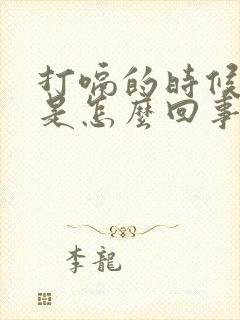 打嗝的時候
是怎麼回事
李龍